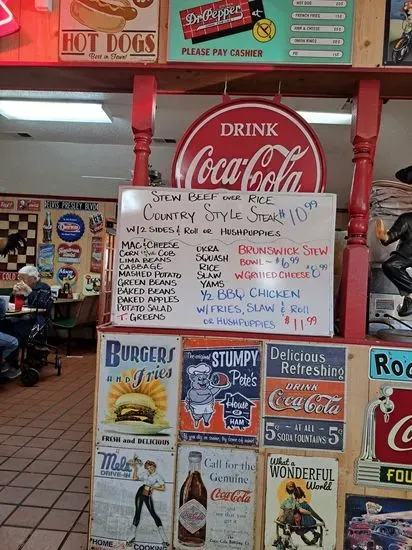 HOT DOGS
Best in Town!
Dr.Pepper
PLEASE PAY CASHIER
HOT DOG
FRENCH FRIES
HAM & CHEESE
ONION RINGS
DRINK
Coca-Cola
STEW BEEF OVER RICE
COUNTRY STYLE STEAK $10.99
W/2 SIDES & ROLL OR HUSHPUPPIES
MAC & CHEESE
CORN ON THE COB
LIMA BEANS
CABBAGE
MASHED POTATO
GREEN BEANS
BAKED BEANS
BAKED APPLES
POTATO SALAD
T GREENS
OKRA
SQUASH
RICE
SLAW
YAMS
BRUNSWICK STEW
BOWL - $6.99
W GRILLED CHEESE $8.99
1/2 BBQ CHICKEN
W/FRIES, SLAW & ROLL
OR HUSHPUPPIES $11.99
ELVIS PRESLEY BLVD
COLD
BURGERS
AND Fries
FRESH and DELICIOUS
The original STUMPY
Pete's
House
O'
HAM
Delicious
Refreshing
DRINK
Coca-Cola
5¢ - AT ALL - 5¢
SODA FOUNTAINS
Mel's
DRIVE-IN
HOME COOKING
Call for the
Genuine
Coca-Cola
What a
WONDERFUL
World
FOU